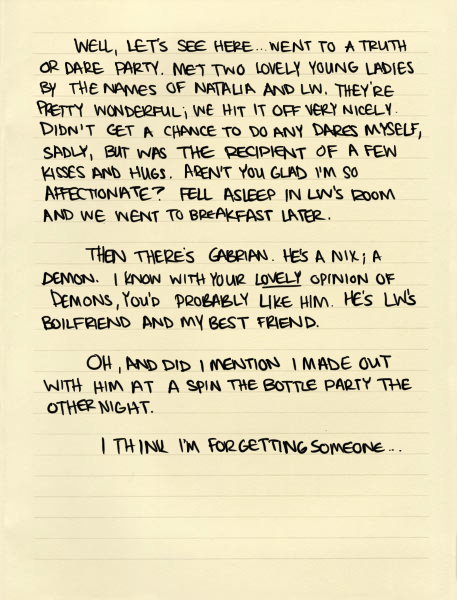 WELL, LET'S SEE HERE... WENT TO A TRUTH
OR DARE PARTY. MET TWO LOVELY YOUNG LADIES
BY THE NAMES OF NATALIA AND LW. THEY'RE
PRETTY WONDERFUL; WE HIT IT OFF VERY NICELY.
DIDN'T GET A CHANCE TO DO ANY DARES MYSELF,
SADLY, BUT WAS THE RECIPIENT OF A FEW
KISSES AND HUGS. AREN'T YOU GLAD I'M SO
AFFECTIONATE? FELL ASLEEP IN LW'S ROOM
AND WE WENT TO BREAKFAST LATER.
THEN THERE'S GABRIAN. HE'S A NIX; A
DEMON. I KNOW WITH YOUR LOVELY OPINION OF
DEMONS, YOU'D PROBABLY LIKE HIM. HE'S LW'S
BOILFRIEND AND MY BEST FRIEND.
OH, AND DID I MENTION I MADE OUT
WITH HIM AT A SPIN THE BOTTLE PARTY THE
OTHER NIGHT.
I THINK I'M FORGETTING SOMEONE...